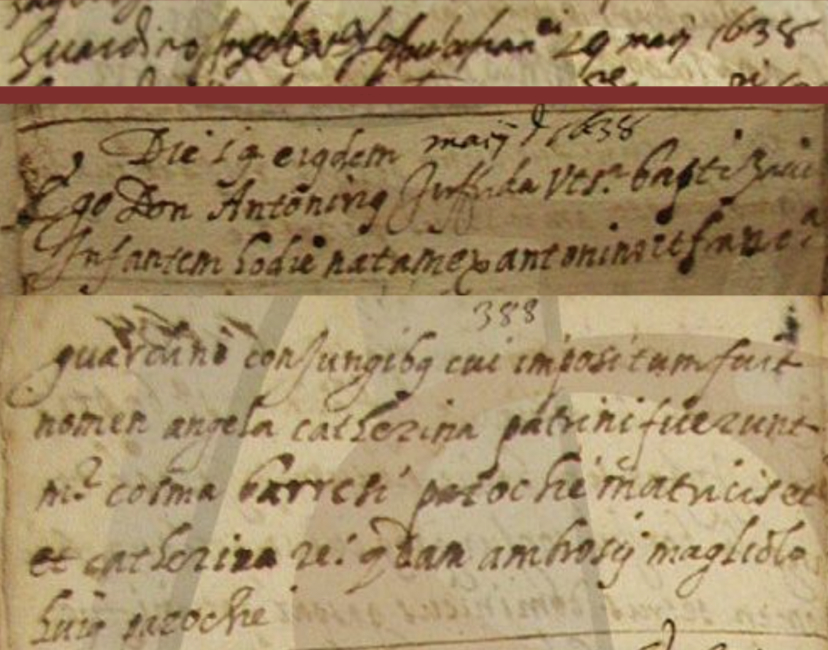 Guardino 29 maij 1638
Die 19 eiusdem maij 1638
Ego Don Antoninus Giuffrida Vts.a baptizaui
Infantem hodie natam ex antonino et franc.a
388
guardino coniungibq cui impositum fuit
nomen angela catherina patrini fuerunt
m.o cosma barresi parochie matricis et
et catherina re: qdam ambrosij magliolo
huiq paroche